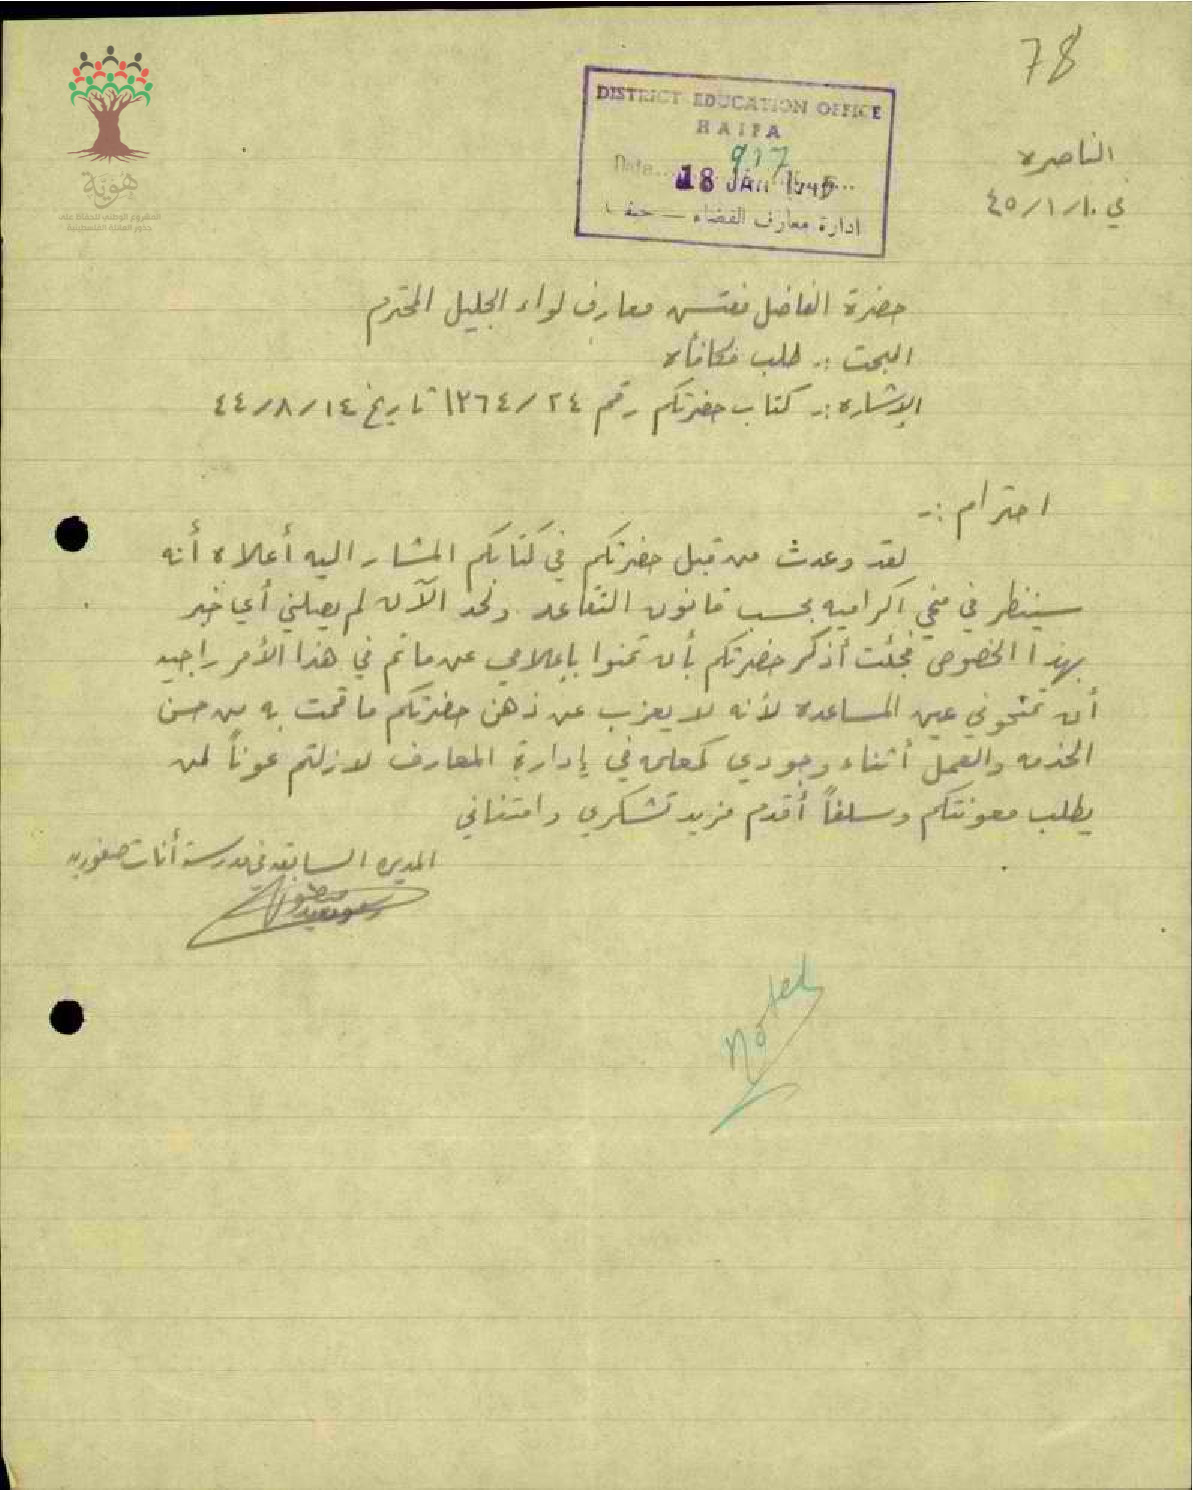 78
DISTRICT EDUCATION OFFICE
HAIFA
Date... 917
18 JAN 1945
ادارة معارف القضاء — حيفا
الناصره
في ١٠/١/٤٥
هوية
المشروع الوطني للحفاظ على
جذور العائلة الفلسطينية
حضرة الفاضل مفتش معارف لواء الجليل المحترم
البحث :- طلب مكافأه
الإشاره :- كتاب حضرتكم رقم ٢٤/١٣٦٤ تاريخ ١٤/٨/٤٤
احترام :-
لقد وعدت من قبل حضرتكم في كتابكم المشار اليه أعلاه أنه
سينظر في منحي اكراميه بحسب قانون التقاعد. ولحد الآن لم يصلني أي خبر
بهذا الخصوص فجئت أذكر حضرتكم بأن تمنوا بإعلامي عن ماتم في هذا الأمر راجيه
أن تمنحوني عين المساعده لأنه لا يعزب عن ذهن حضرتكم ما قمت به من حسن
الخدمه والعمل أثناء وجودي كمعلمه في إدارة المعارف لازلتم عوناً لمن
يطلب معونتكم وسلفاً أقدم مزيد تشكري وامتناني
المديره السابقه في مدرسة أناث صفوريه
noted